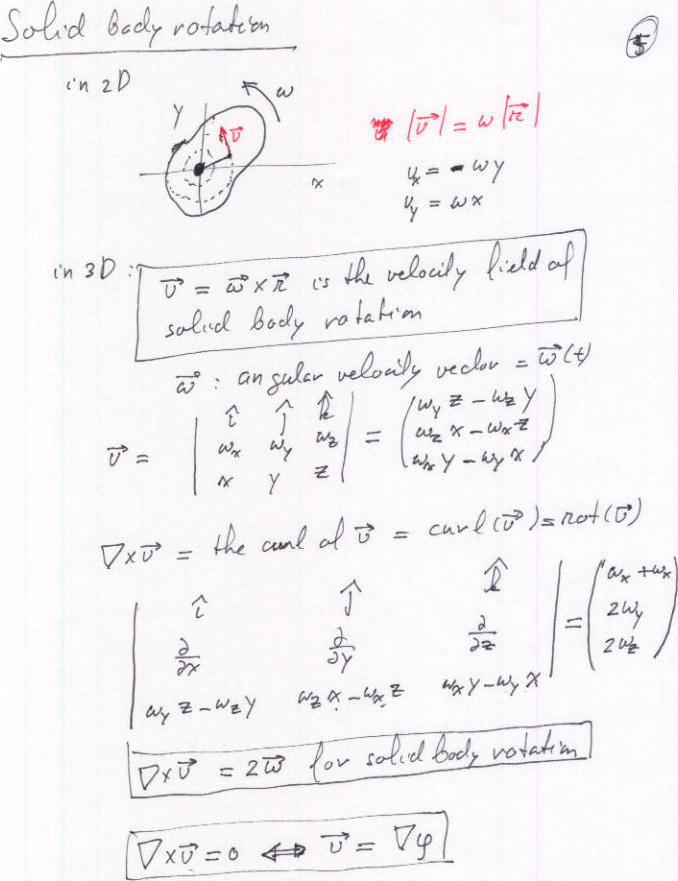 Solid body rotation
5
in 2D
ω
y
v⃗
x
|v⃗| = ω |r⃗|
u_x = - ωy
u_y = ωx
in 3D :
v⃗ = ω⃗ × r⃗ is the velocity field of
solid body rotation
ω⃗ : angular velocity vector = ω⃗(t)
v⃗ = | î ĵ k̂ | = ( ω_y z - ω_z y )
| ω_x ω_y ω_z | ( ω_z x - ω_x z )
| x y z | ( ω_x y - ω_y x )
∇×v⃗ = the curl of v⃗ = curl(v⃗) = rot(v⃗)
| î ĵ k̂ | = ( ω_x + ω_x )
| ∂/∂x ∂/∂y ∂/∂z | ( 2ω_y )
| ω_y z - ω_z y ω_z x - ω_x z ω_x y - ω_y x | ( 2ω_z )
∇×v⃗ = 2ω⃗ for solid body rotation
∇×v⃗ = 0 ⇔ v⃗ = ∇φ